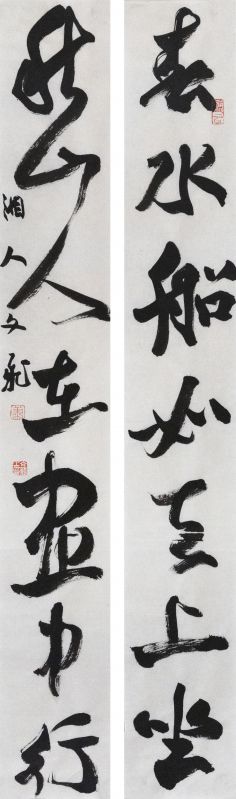 春水船如天上坐
秋山人在画中行
湘人文飛